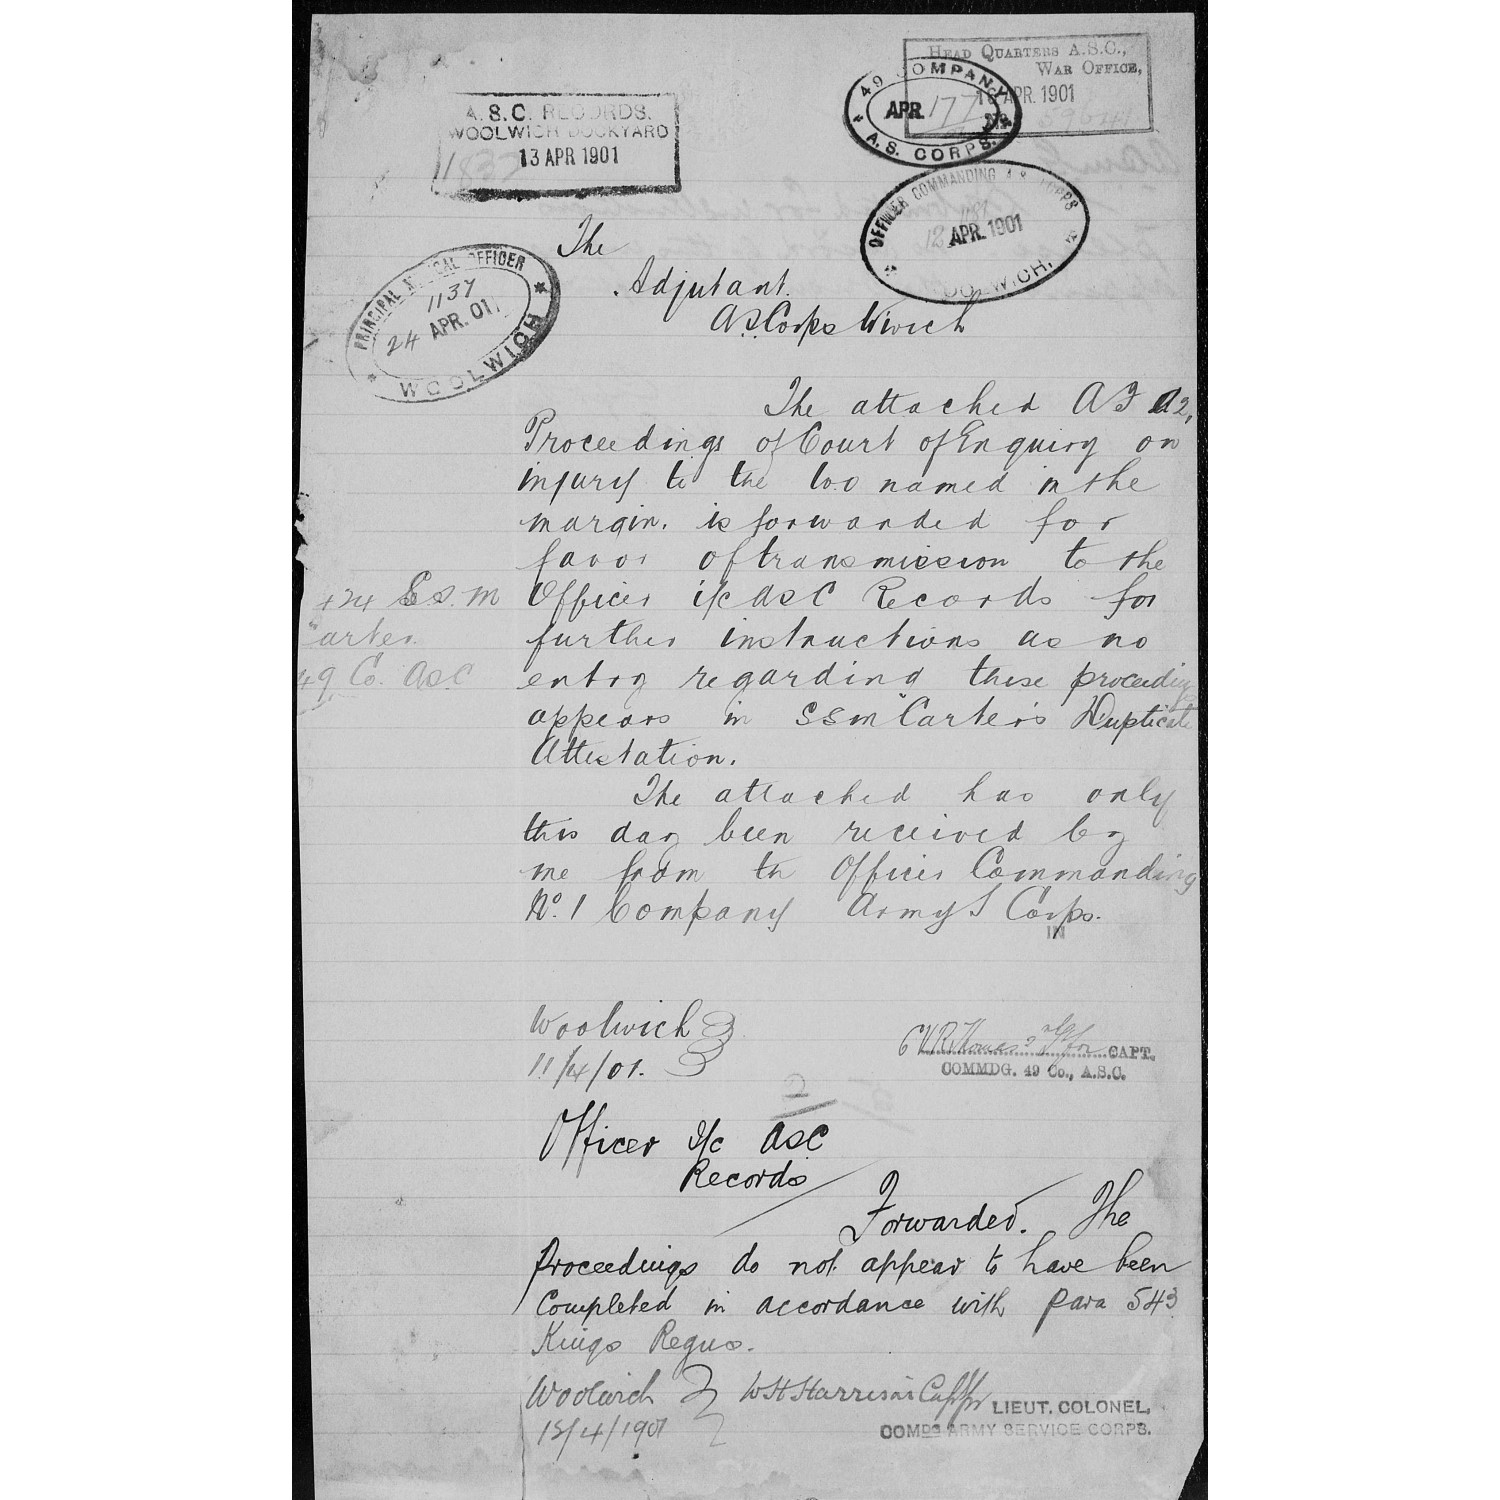 HEAD QUARTERS A.S.C.,
WAR OFFICE,
APR. 1901
49 COMPANY
APR. 177
A. S. CORPS.
A. S. C. RECORDS.
WOOLWICH DOCKYARD
13 APR 1901
OFFICER COMMANDING A S CORPS
12 APR. 1901
WOOLWICH.
PRINCIPAL MEDICAL OFFICER
1137
24 APR. 01
WOOLWICH
The
Adjutant.
A.S. Corps Wwich
The attached A F A2,
Proceedings of Court of Enquiry on
injury to the W.O named in the
margin, is forwarded for
favor of transmission to the
Officer i/c ASC Records for
further instructions as no
entry regarding these proceedings
appears in SSM Carter's Duplicate
Attestation.
S.S.M
Carter
49 Co. ASC
The attached has only
this day been received by
me from th Officer Commanding
No. 1 Company Army S Corps.
Woolwich
11/4/01.
for CAPT.
COMMDG. 49 Co., A.S.C.
2
Officer I/c ASC
Records
Forwarded. The
Proceedings do not appear to have been
completed in accordance with para 543
Kings Regns.
Woolwich
12/4/1901
W H Harrison Capt for LIEUT. COLONEL,
COMDG ARMY SERVICE CORPS.